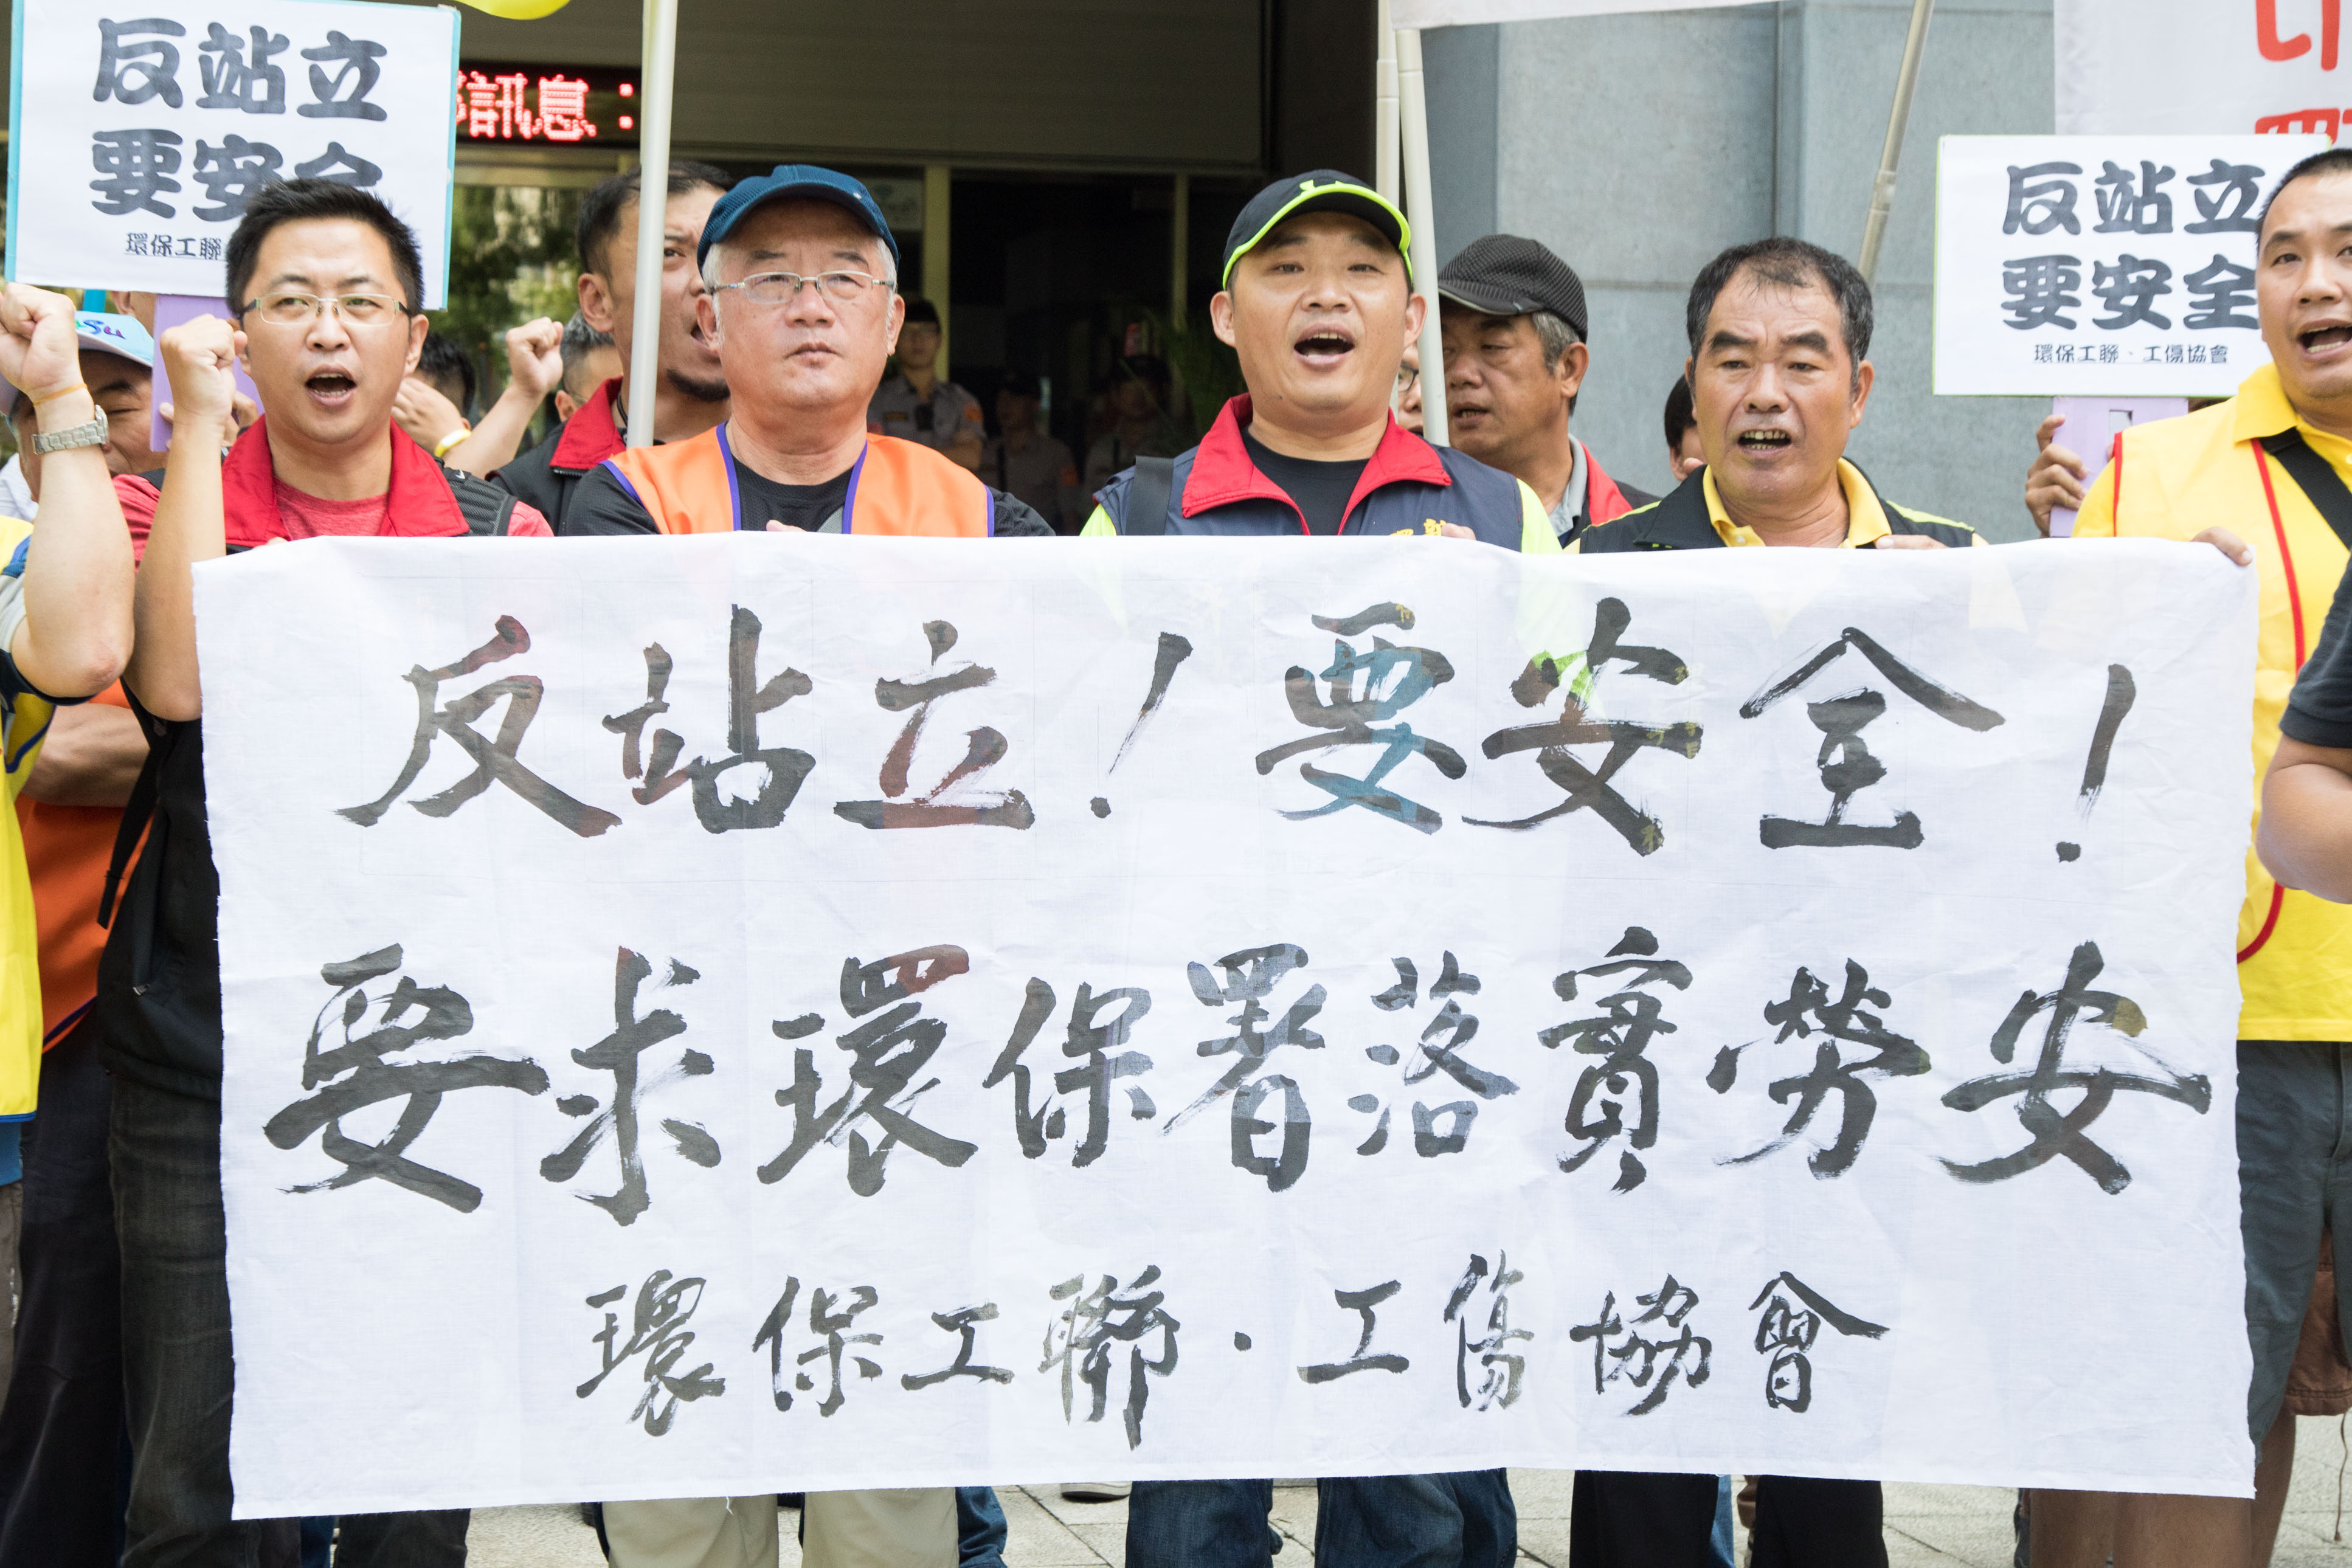 反站立
要安全
環保工聯
訊息：
反站立
要安全
環保工聯、工傷協會
反站立！要安全！
要求環保署落實勞安
環保工聯·工傷協會